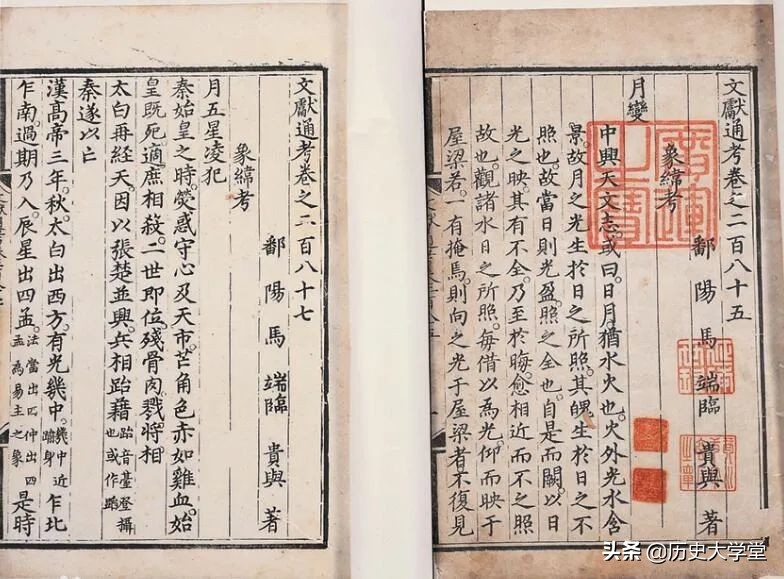 文獻通考卷之二百八十五
鄱陽馬端臨貴與著
象緯考
月變
中興天文志。或曰。日月猶水火也。火外光水含
景。故月之光生於日之所照。其魄生於日之不
照也。故當日則光盈。照之全也。自是而闕。以日
光之映。其有不全。乃至於晦。愈相近而不之照
故也。觀諸水日之所照。每借以爲光。仰而映于
屋梁。若一有掩焉。則向之光于屋梁者不復見
文獻通考卷之二百八十七
鄱陽馬端臨貴與著
象緯考
月五星凌犯
秦始皇之時。熒惑守心及天市。芒角色赤如雞血。始
皇既死。適庶相殺。二世即位。殘骨肉。戮將相
太白再經天。因以張楚並興。兵相跆藉跆音臺登攝也或作蹈
秦遂以亡
漢高帝三年。秋。太白出西方。有光幾中。幾中近踰身乍北
乍南。過期乃入。辰星出四孟。法當出四仲出四孟為易主之象是時
头条 @历史大学堂